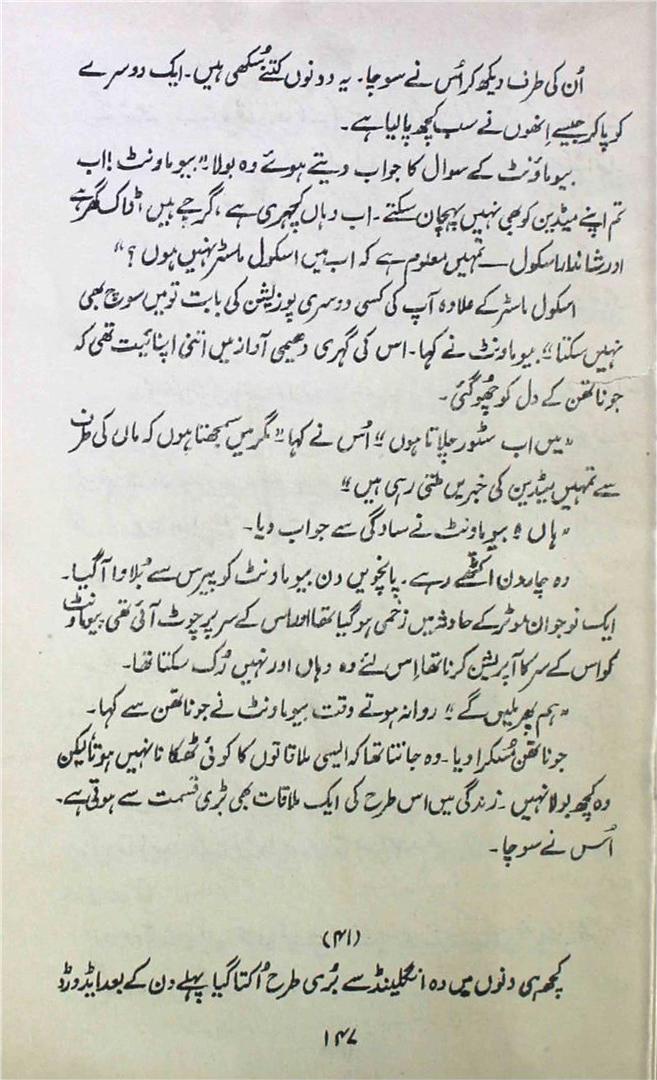 اُن کی طرف دیکھ کر اُس نے سوچا۔ یہ دونوں کتنے سُکھی ہیں۔ ایک دوسرے
کو پاکر جیسے اِنھوں نے سب کچھ پا لیا ہے۔
بیوماؤنٹ کے سوال کا جواب دیتے ہوئے وہ بولا۔ "بیوماونٹ! اب
تم اپنے میڈین کو بھی نہیں پہچان سکتے۔ اب وہاں کچہری ہے، گرجے ہیں، ڈاک گھر ہے
اور شاندار اسکول — تمہیں معلوم ہے کہ اب میں اسکول ماسٹر نہیں ہوں؟"
اسکول ماسٹر کے علاوہ آپ کی کسی دوسری پوزیشن کی بابت تو میں سوچ بھی
نہیں سکتا" بیوماونٹ نے کہا۔ اس کی گہری دھیمی آواز میں اتنی اپنائیت تھی کہ
جوناتھن کے دل کو چھو گئی۔
"میں اب سٹور چلاتا ہوں" اُس نے کہا "مگر میں سمجھتا ہوں کہ ماں کی طرف
سے تمہیں میڈین کی خبریں ملتی رہی ہیں"
"ہاں" بیوماونٹ نے سادگی سے جواب دیا۔
وہ چار دن اکٹھے رہے۔ پانچویں دن بیوماونٹ کو پیرس سے بُلاوا آگیا۔
ایک نوجوان موٹر کے حادثہ میں زخمی ہو گیا تھا اور اس کے سر پر چوٹ آئی تھی۔ بیوماونٹ
کو اس کے سر کا آپریشن کرنا تھا اِس لئے وہ وہاں اور نہیں رُک سکتا تھا۔
"ہم پھر ملیں گے" روانہ ہوتے وقت بیوماونٹ نے جوناتھن سے کہا۔
جوناتھن مُسکرا دیا۔ وہ جانتا تھا کہ ایسی ملاقاتوں کا کوئی ٹھکانا نہیں ہوتا لیکن
وہ کچھ بولا نہیں۔ زندگی میں اس طرح کی ایک ملاقات بھی بڑی قسمت سے ہوتی ہے۔
اُس نے سوچا۔
(۴۱)
کچھ ہی دنوں میں وہ انگلینڈ سے بُری طرح اُکتا گیا پہلے دن کے بعد ایڈورڈ
۱۴۷